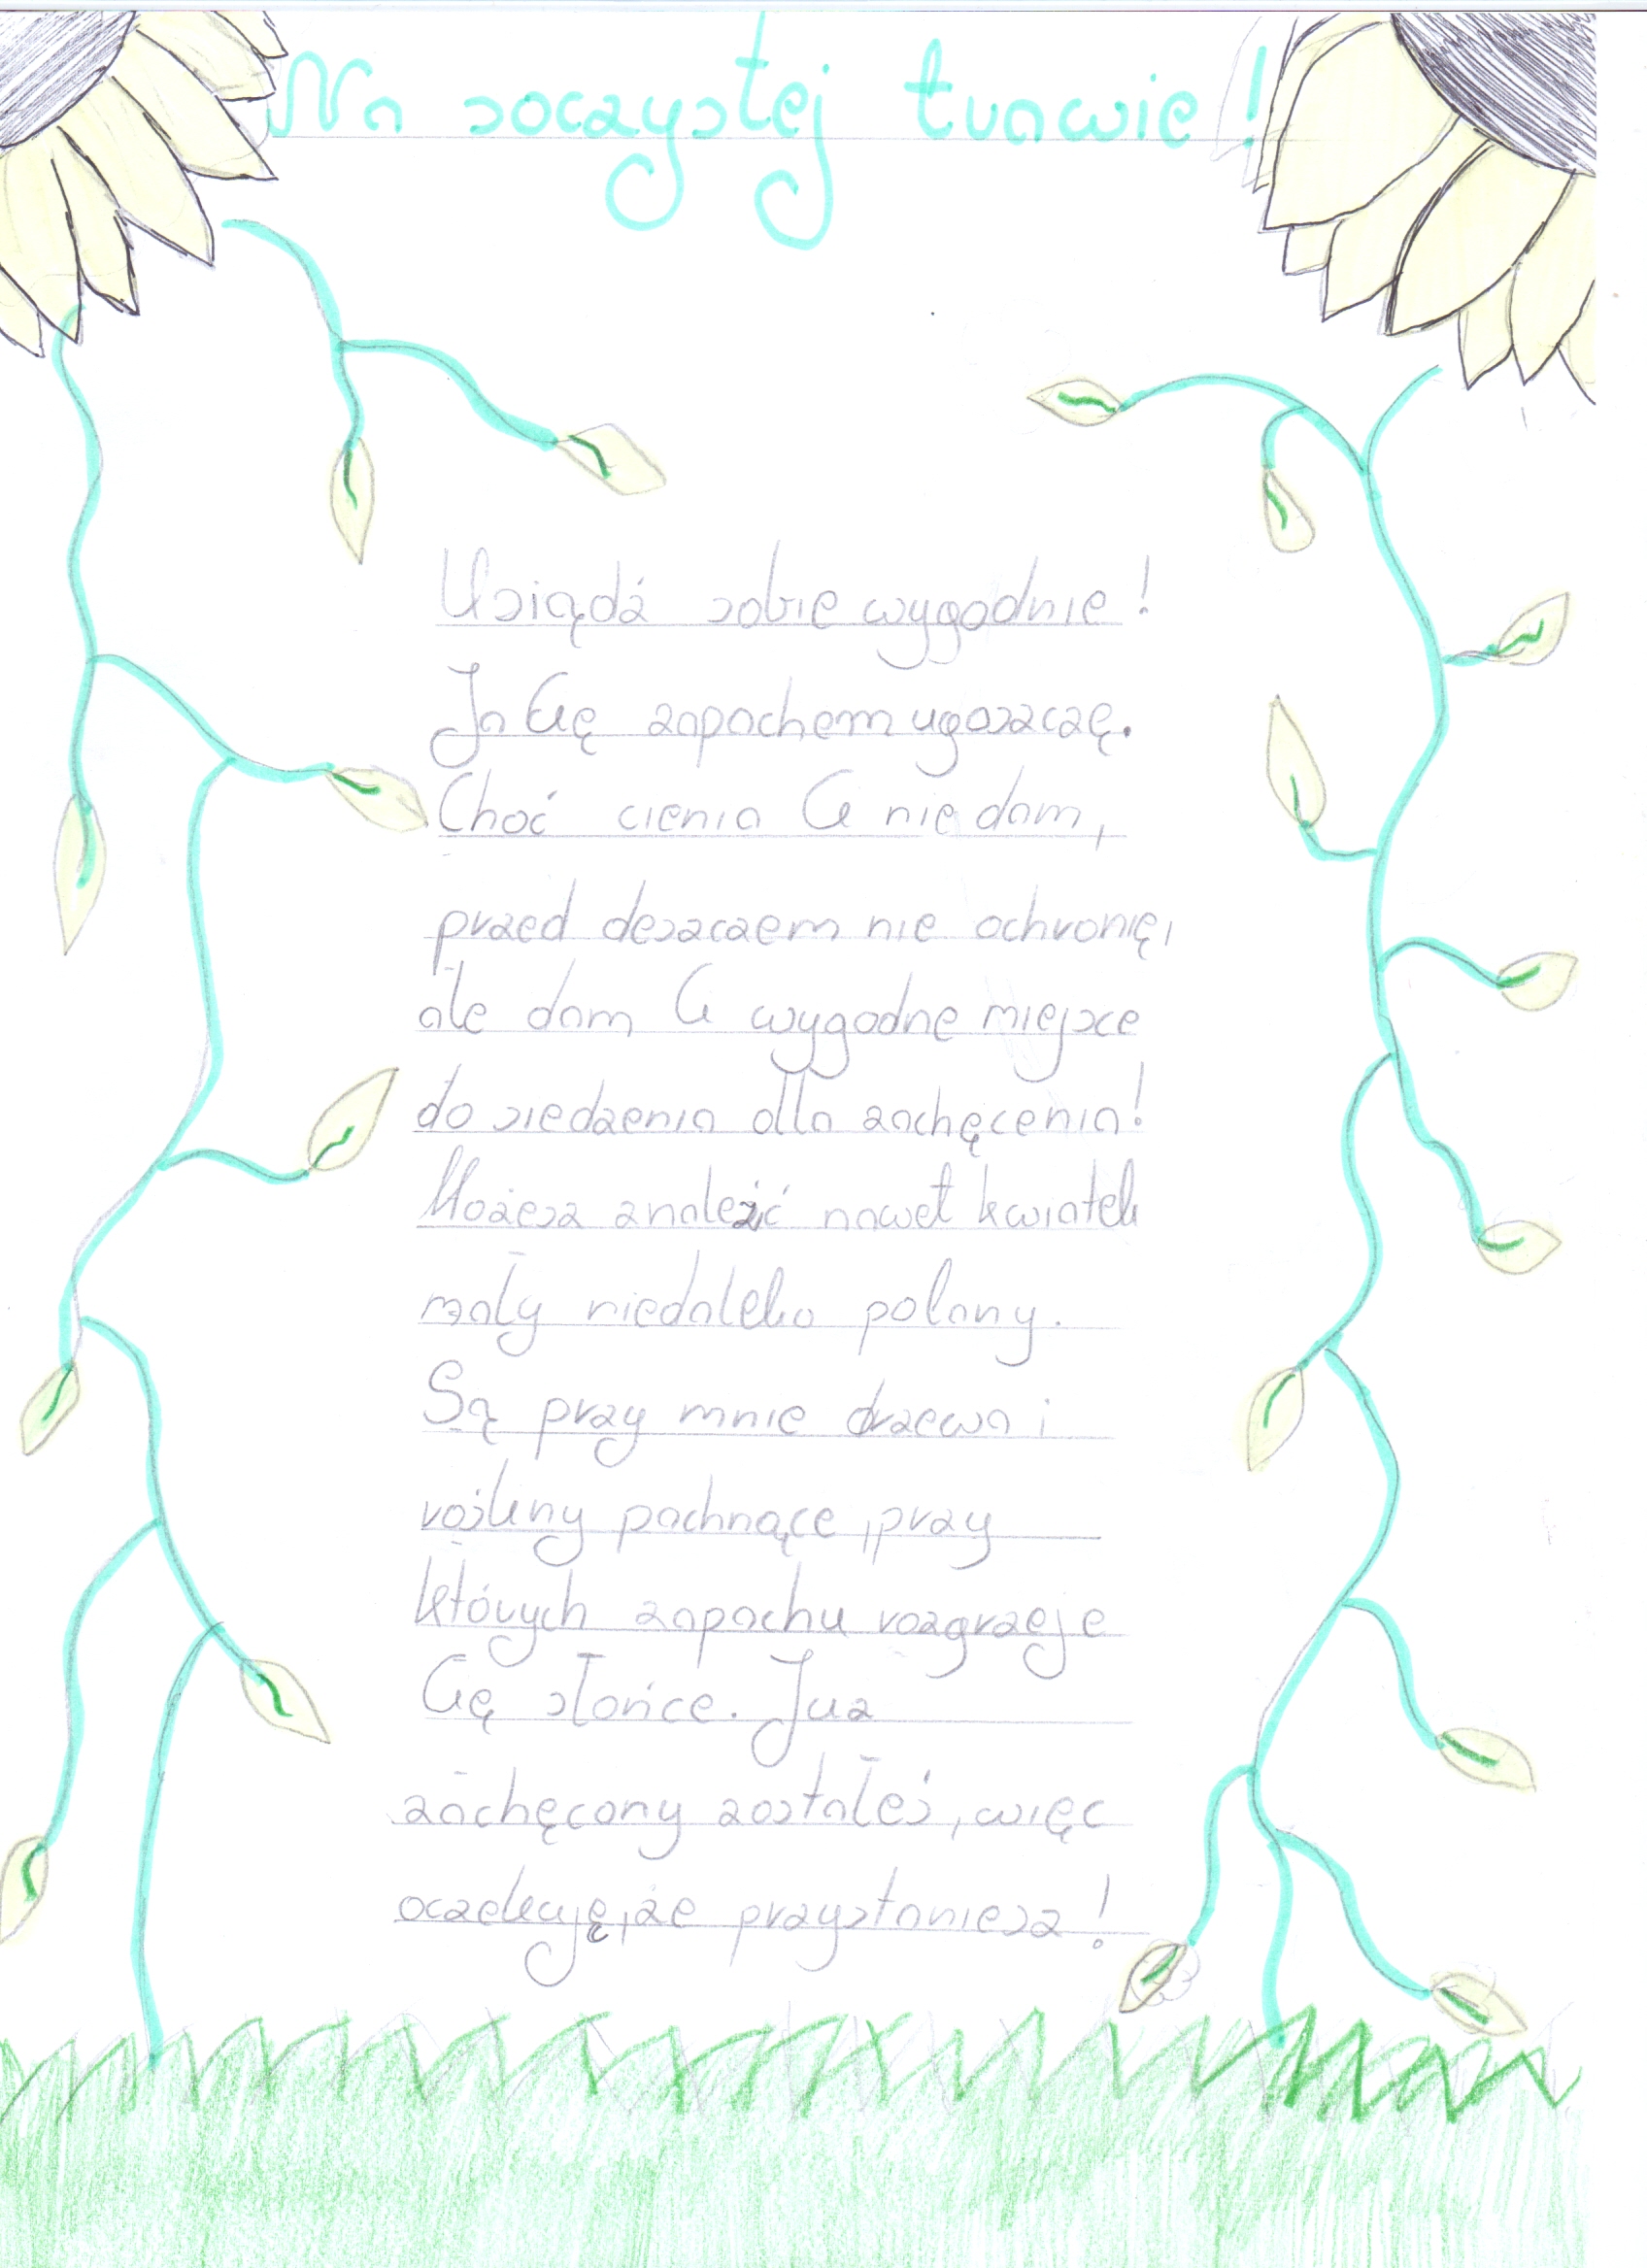 Na soczystej trawie!
Usiądź sobie wygodnie!
Ja Cię zapachem ugoszczę.
Choć cienia Ci nie dam,
przed deszczem nie ochronię,
ale dam Ci wygodne miejsce
do siedzenia dla zachęcenia!
Możesz znaleźć nawet kwiatek
mały niedaleko polany.
Są przy mnie drzewa i
rośliny pachnące, przy
których zapachu rozgrzeje
Cię słońce. Już
zachęcony zostałeś, więc
oczekuję, że przystaniesz!